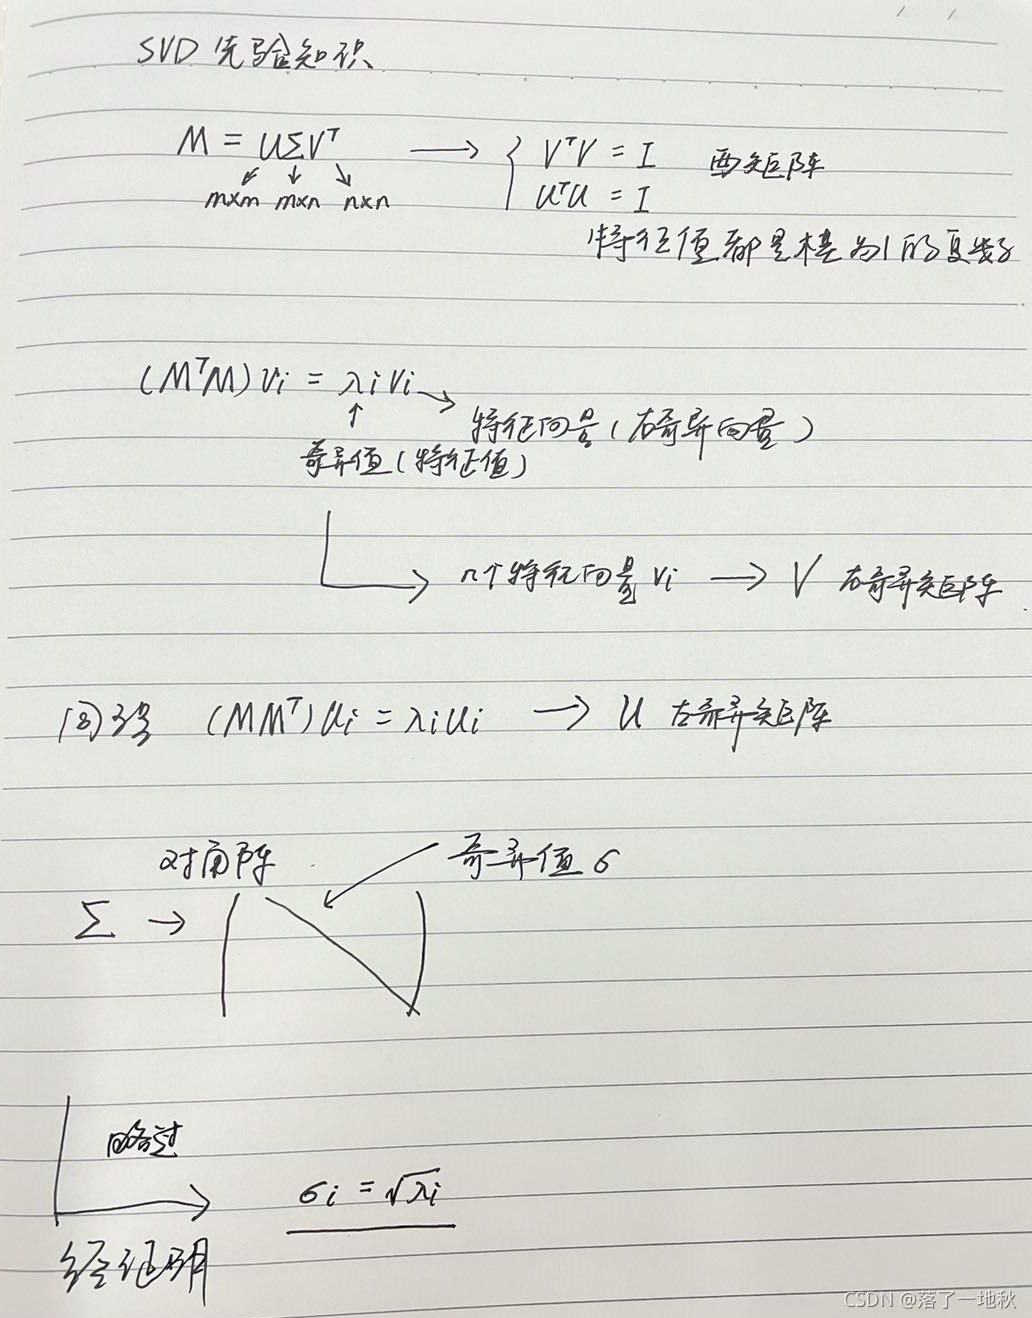 SVD 先验知识
M = UΣVᵀ → { VᵀV = I 酉矩阵
m×m m×n n×n UᵀU = I
特征值都是模为1的复数
(MᵀM)vi = λivi
特征向量(右奇异向量)
奇异值(特征值)
n个特征向量vi → V 右奇异矩阵
同理 (MMᵀ)ui = λiui → U 左奇异矩阵
对角阵 奇异值σ
Σ →
略过
σi = √λi
经证明
CSDN @落了一地秋